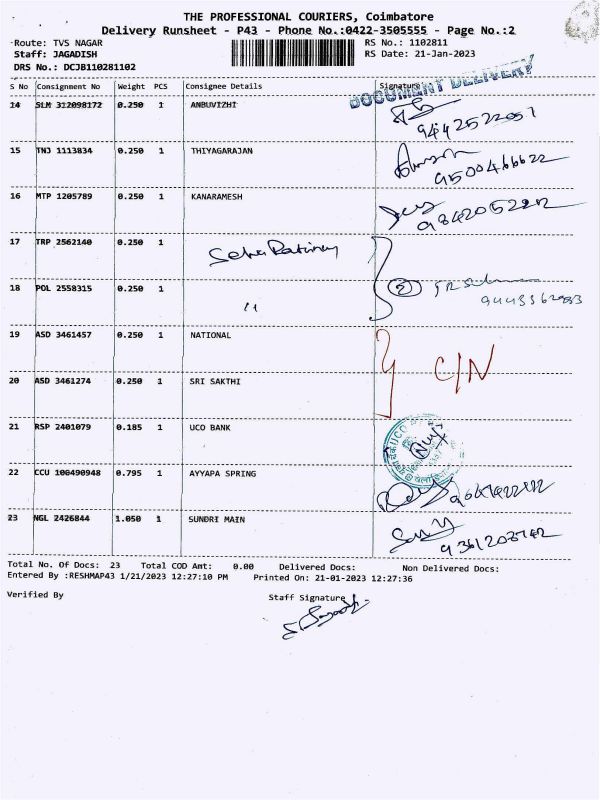 THE PROFESSIONAL COURIERS, Coimbatore
Delivery Runsheet - P43 - Phone No.:0422-3505555 - Page No.:2
Route: TVS NAGAR RS No.: 1102811
Staff: JAGADISH RS Date: 21-Jan-2023
DRS No.: DCJB110281102
DOCUMENT DELIVERY
S No Consignment No Weight PCS Consignee Details Signature
14 SLM 312098172 0.250 1 ANBUVIZHI
15 TNJ 1113834 0.250 1 THIYAGARAJAN 9500466622
16 MTP 1205789 0.250 1 KANARAMESH
17 TRP 2562140 0.250 1
18 POL 2558315 0.250 1 〃 2
19 ASD 3461457 0.250 1 NATIONAL
C/N
20 ASD 3461274 0.250 1 SRI SAKTHI
21 RSP 2401079 0.185 1 UCO BANK
UCO
22 CCU 100490948 0.795 1 AYYAPA SPRING
23 NGL 2426844 1.050 1 SUNDRI MAIN
Total No. Of Docs: 23 Total COD Amt: 0.00 Delivered Docs: Non Delivered Docs:
Entered By :RESHMAP43 1/21/2023 12:27:10 PM Printed On: 21-01-2023 12:27:36
Verified By Staff Signature